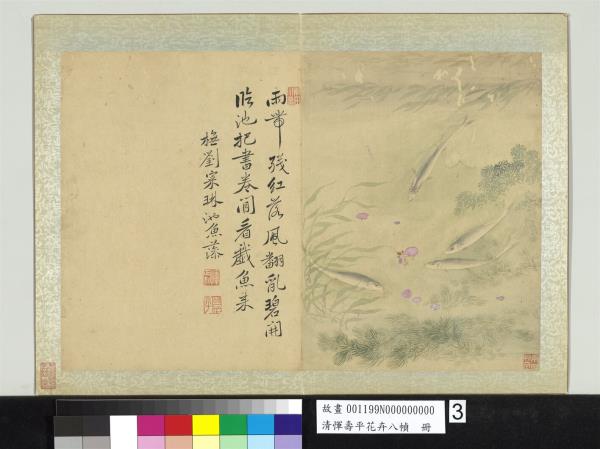 雨帶殘紅落風翻亂碧開
臨池把書卷閒看戲魚来
橅劉寀琳池魚藻
故畫 001199N000000000
清惲壽平花卉八幀 冊
3